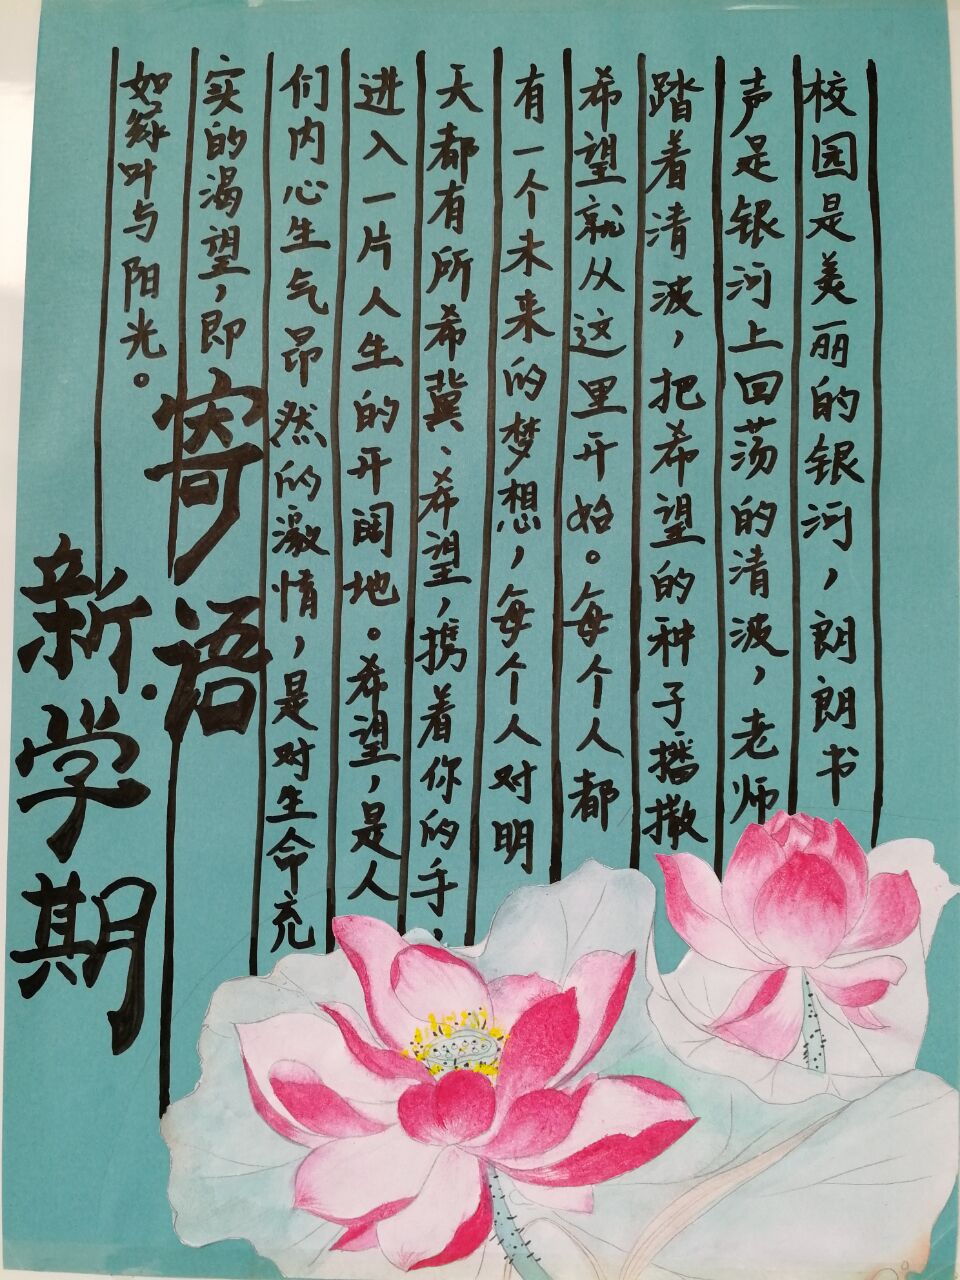 校园是美丽的银河，朗朗书
声是银河上回荡的清波，老师
踏着清波，把希望的种子播撒
希望就从这里开始。每个人都
有一个未来的梦想，每个人对明
天都有所希冀、希望，携着你的手，
进入一片人生的开阔地。希望，是人
们内心生气昂然的激情，是对生命充
实的渴望，即
如绿叶与阳光。
寄语
新学期